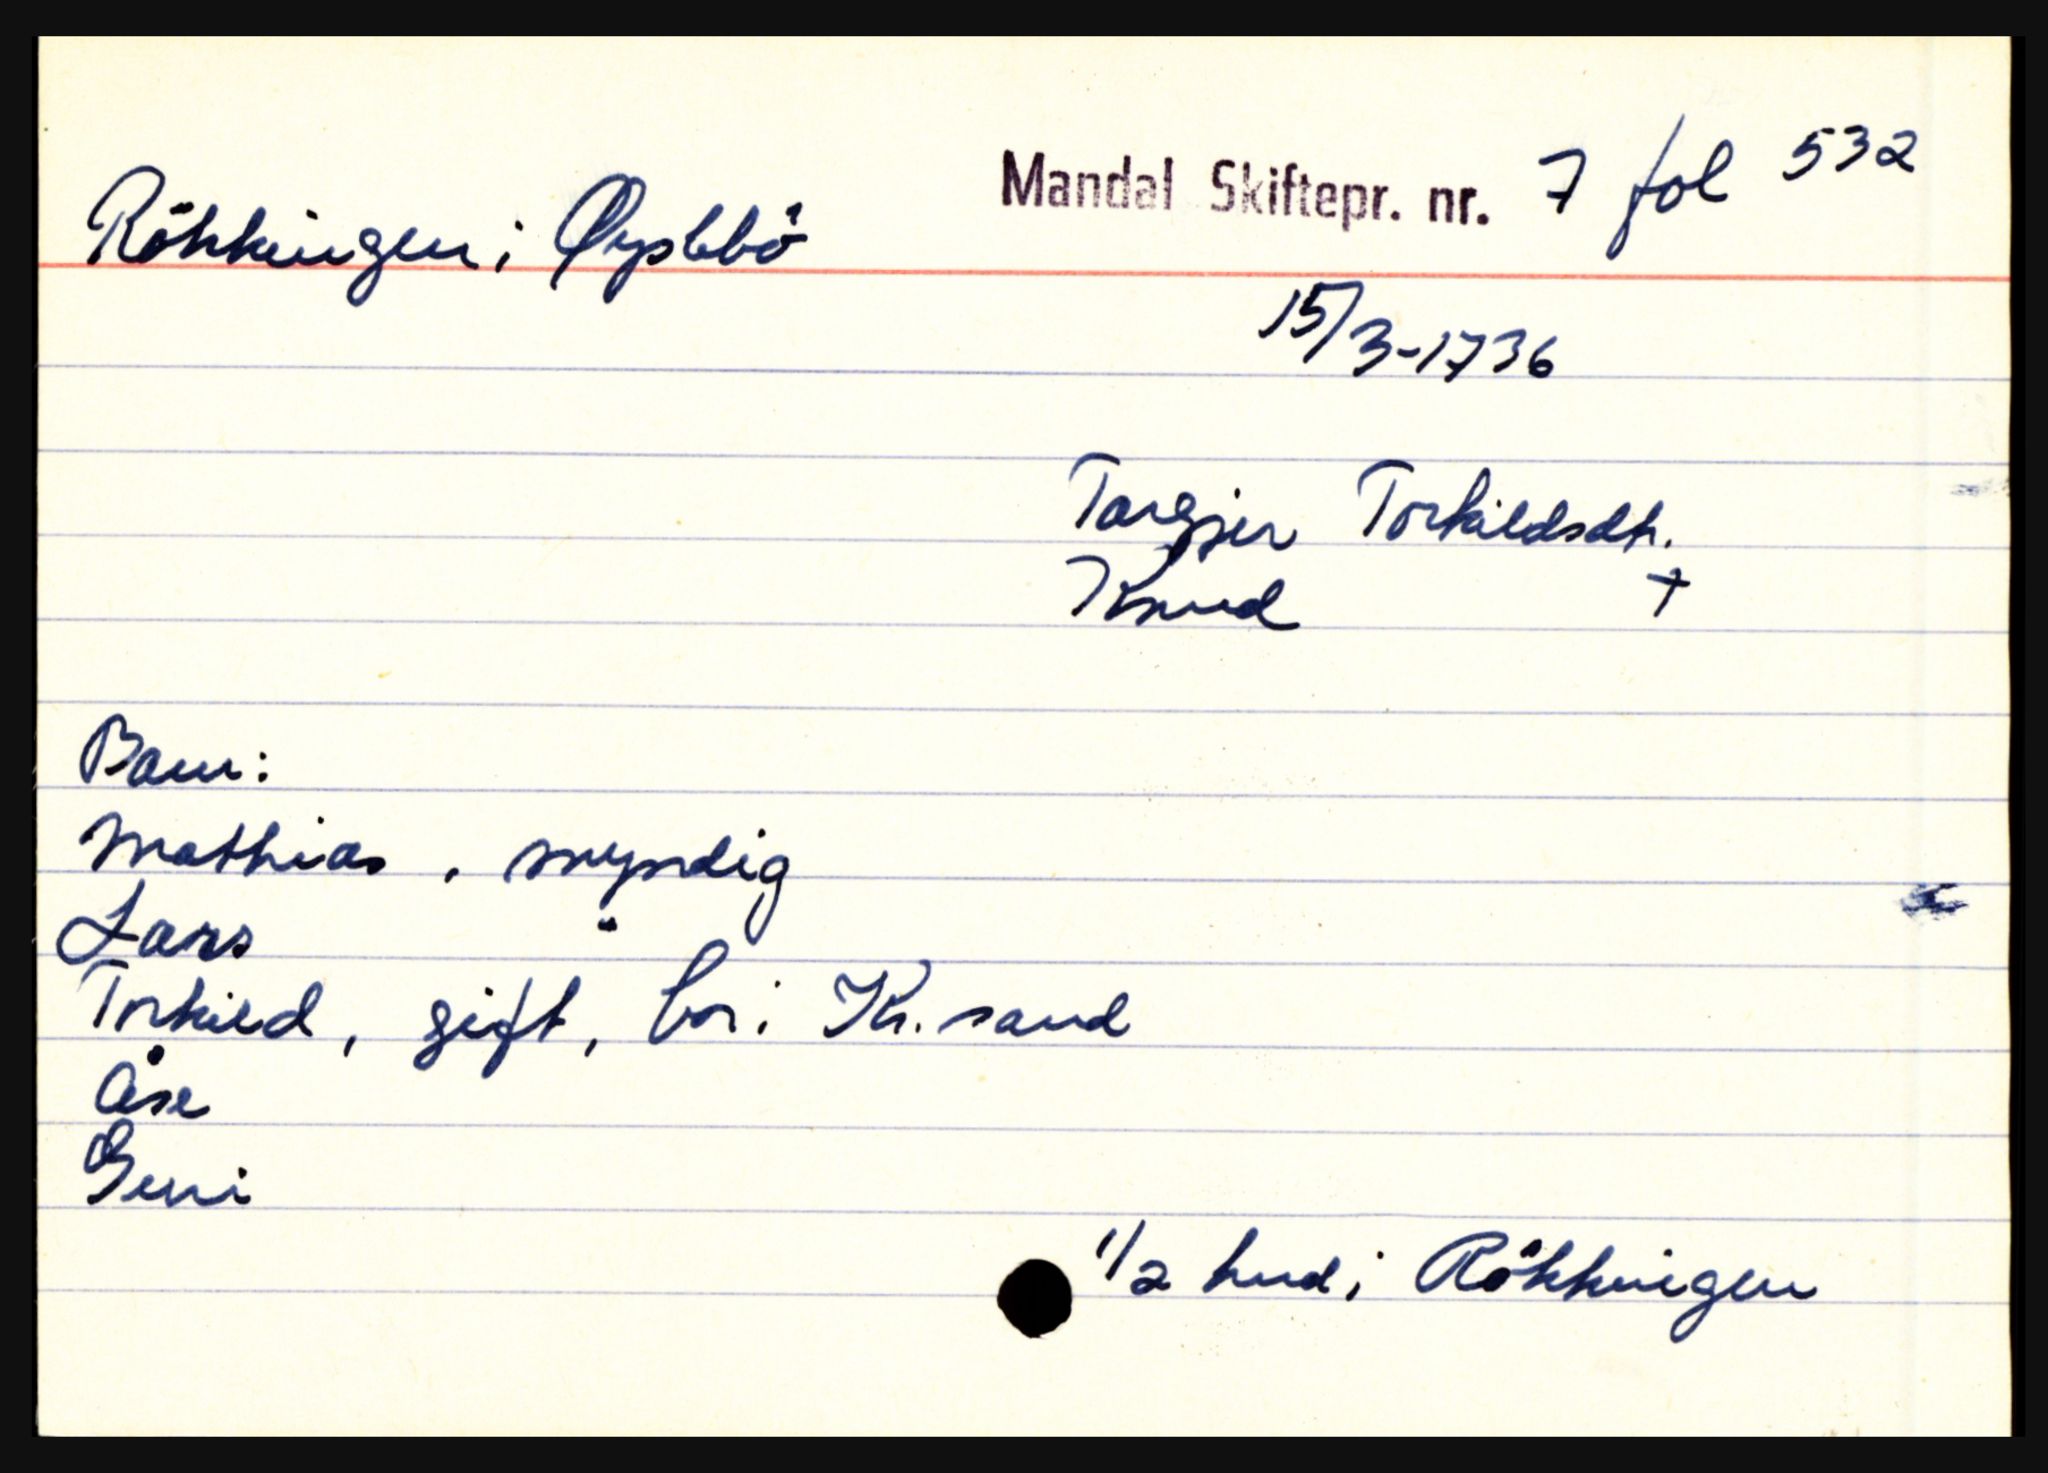 Mandal Skiftepr. nr. 7 fol 532
Rökkingen i Øyslebö
15/3-1736
Targjer Torkildsdtr.
Knud †
Barn:
Mathias, myndig
Lars "
Torkild, gift, bor i Kr.sand
Åse
Guri
1/2 hud i Rökkingen